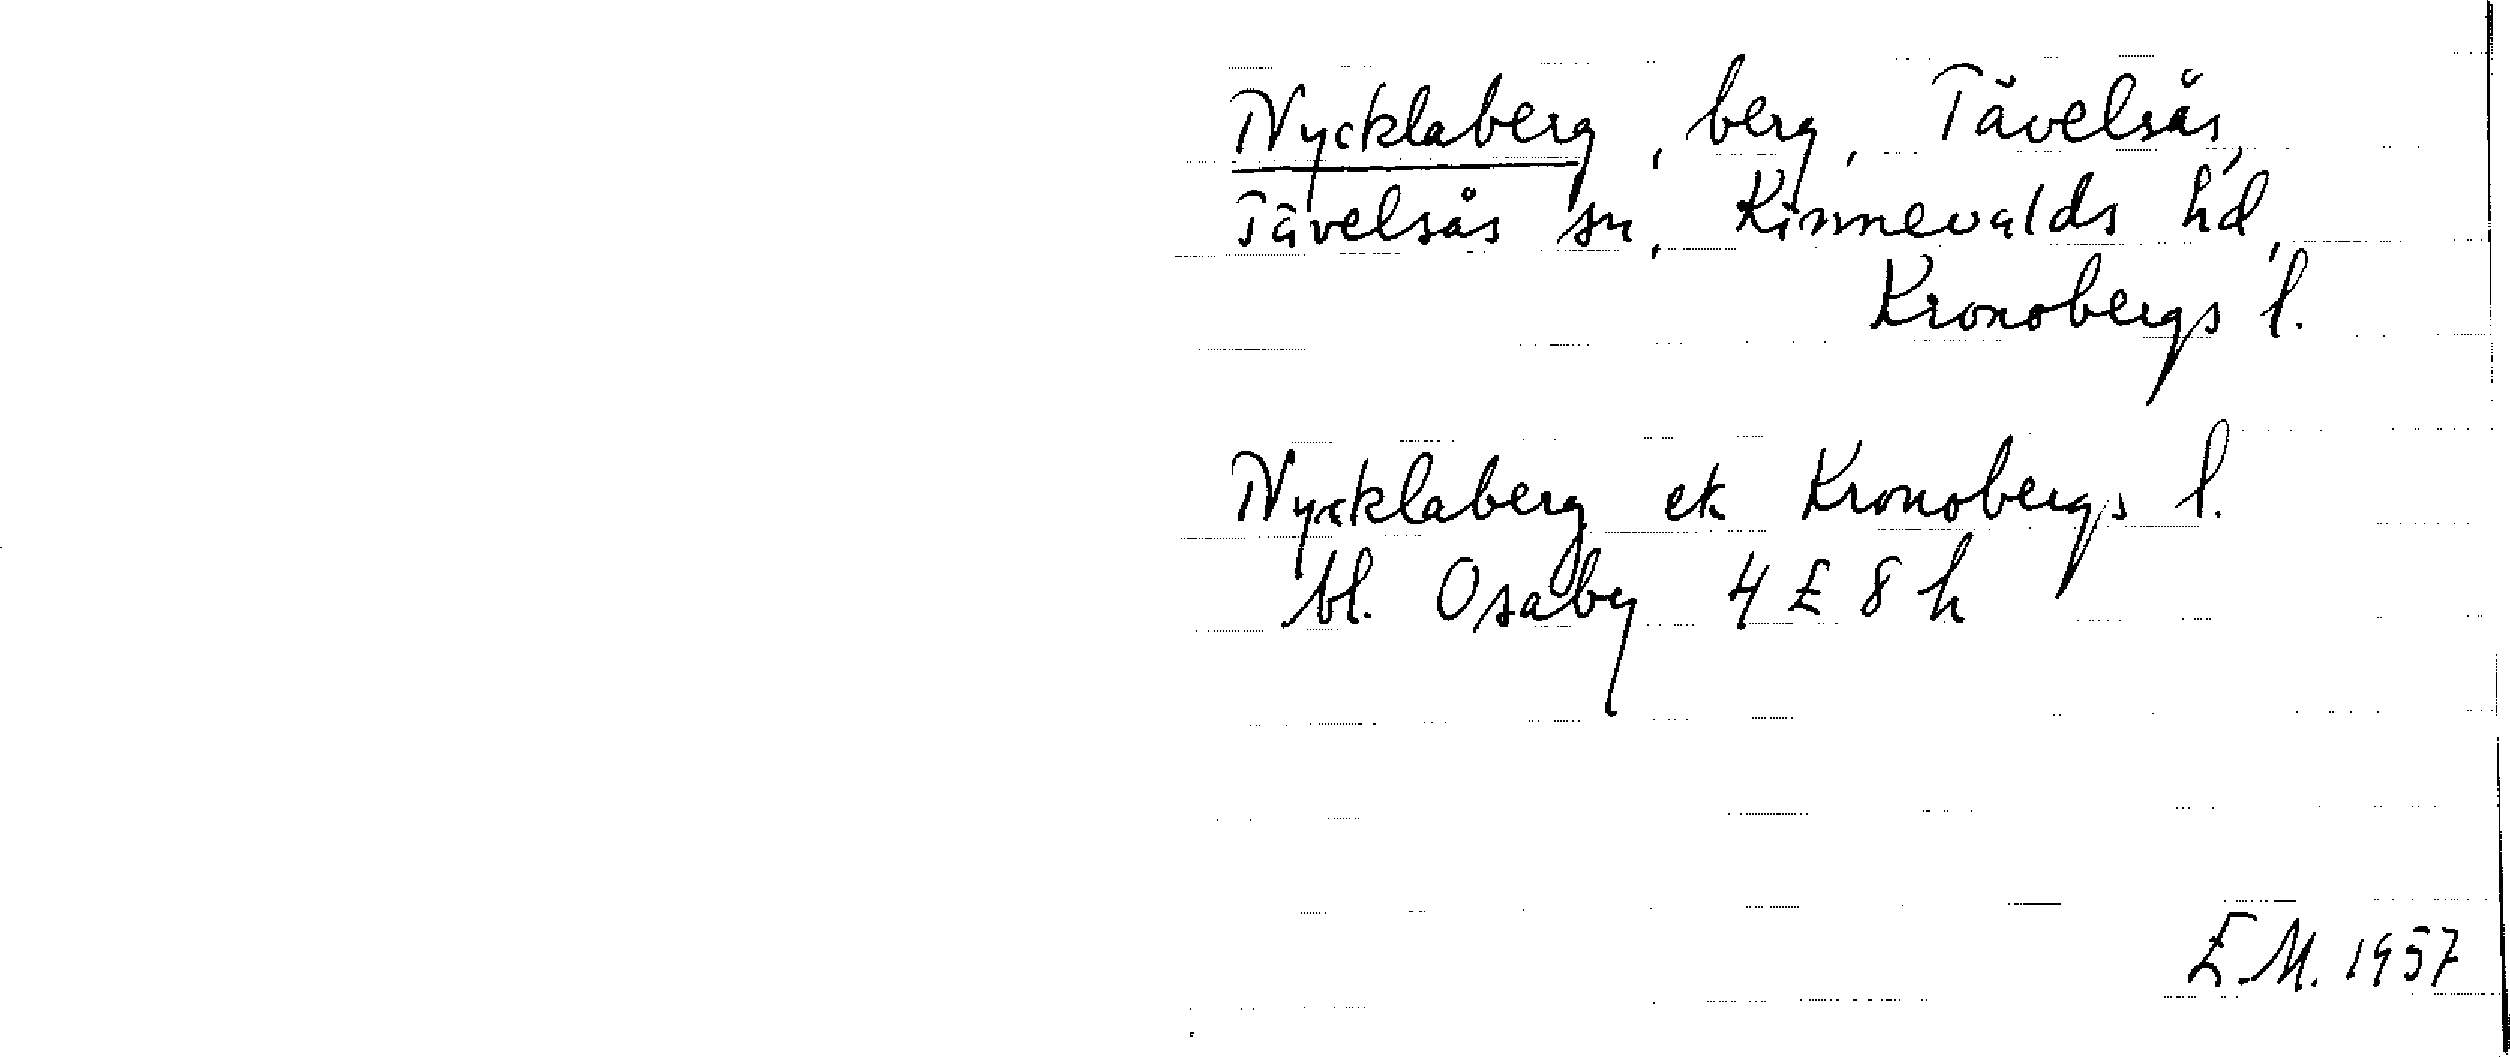 Nycklaberg, berg, Tävelsås,
Tävelsås sn, Kinnevalds hd,
Kronobergs l.
Nycklaberg ek Kronobergs l.
bl. Osaby 4 E 8 h
E.M. 1957